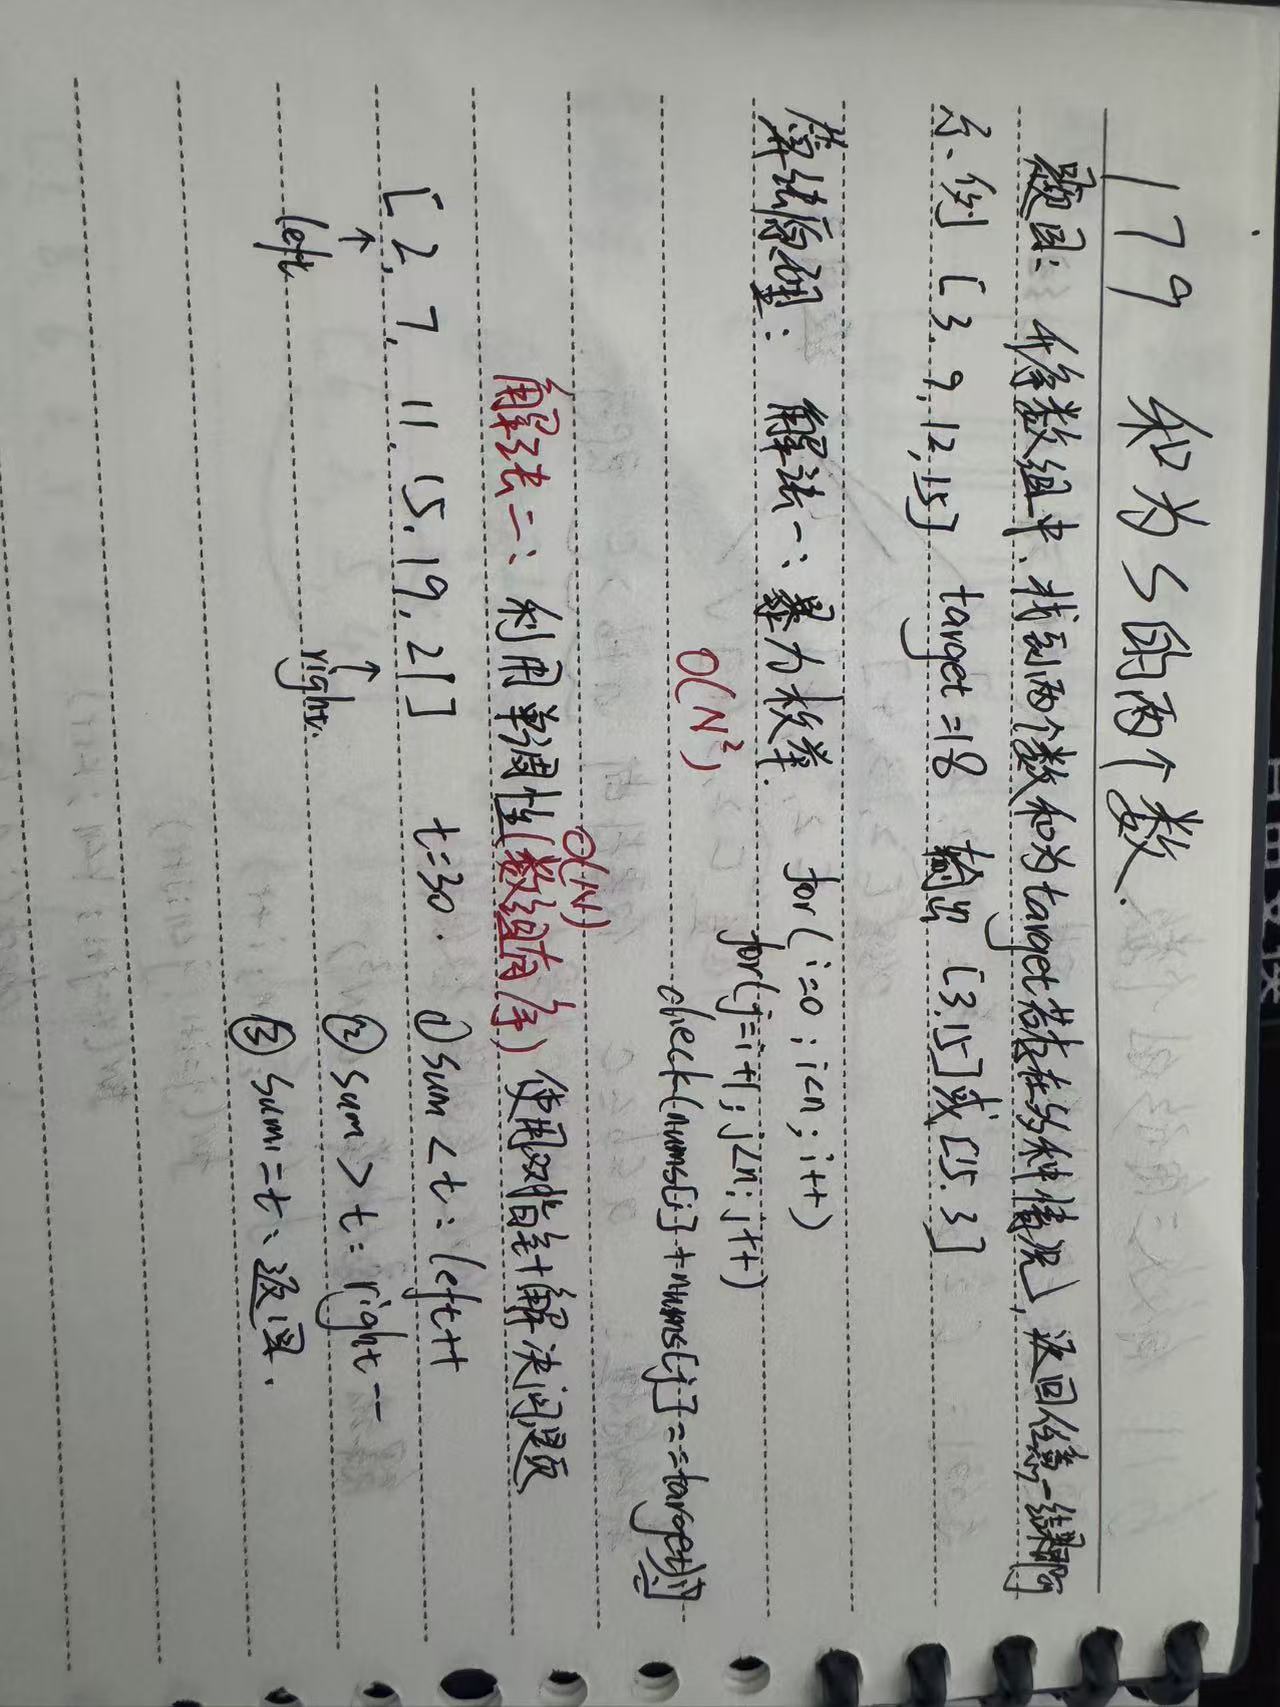 179 和为S的两个数.
题目: 升序数组中, 找到两个数和为target若存在多种情况, 返回任意一结果即可
示例 [3, 9, 12, 15] target=18 输出 [3.15]或[15.3]
算法原理: 解法一: 暴力枚举. for(i=0; i<n; i++)
for(j=i+1; j<n; j++)
O(N²) check(nums[i]+nums[j]==target)
O(N)
解法二: 利用单调性(数组有序) 使用双指针解决问题
[2, 7, 11, 15, 19, 21] t=30. ① sum<t: left++
left right. ② sum>t: right--
③ sum=t、返回.